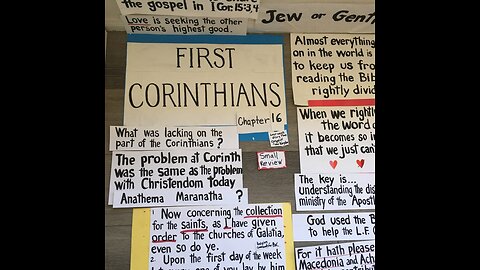 the gospel in 1 Cor. 15:3,4
Love is seeking the other
person's highest good.
Jew or Genti
FIRST
CORINTHIANS
Chapter 16
What was lacking on the
part of the Corinthians?
The problem at Corinth
was the same as the problem
with Christendom today
Anathema Maranatha ?
Small
Review
1 Now concerning the collection
for the saints, as I have given
order to the churches of Galatia,
even so do ye.
2 Upon the first day of the week
let every one of you lay by him
Almost everything
on in the world is
to keep us from
reading the Bib
rightly divid
When we rightly
the Word o
it becomes so in
that we just can't
The key is...
understanding the dis
ministry of the Apost
God used the B
to help the L.F. C
For it hath please
Macedonia and Ach